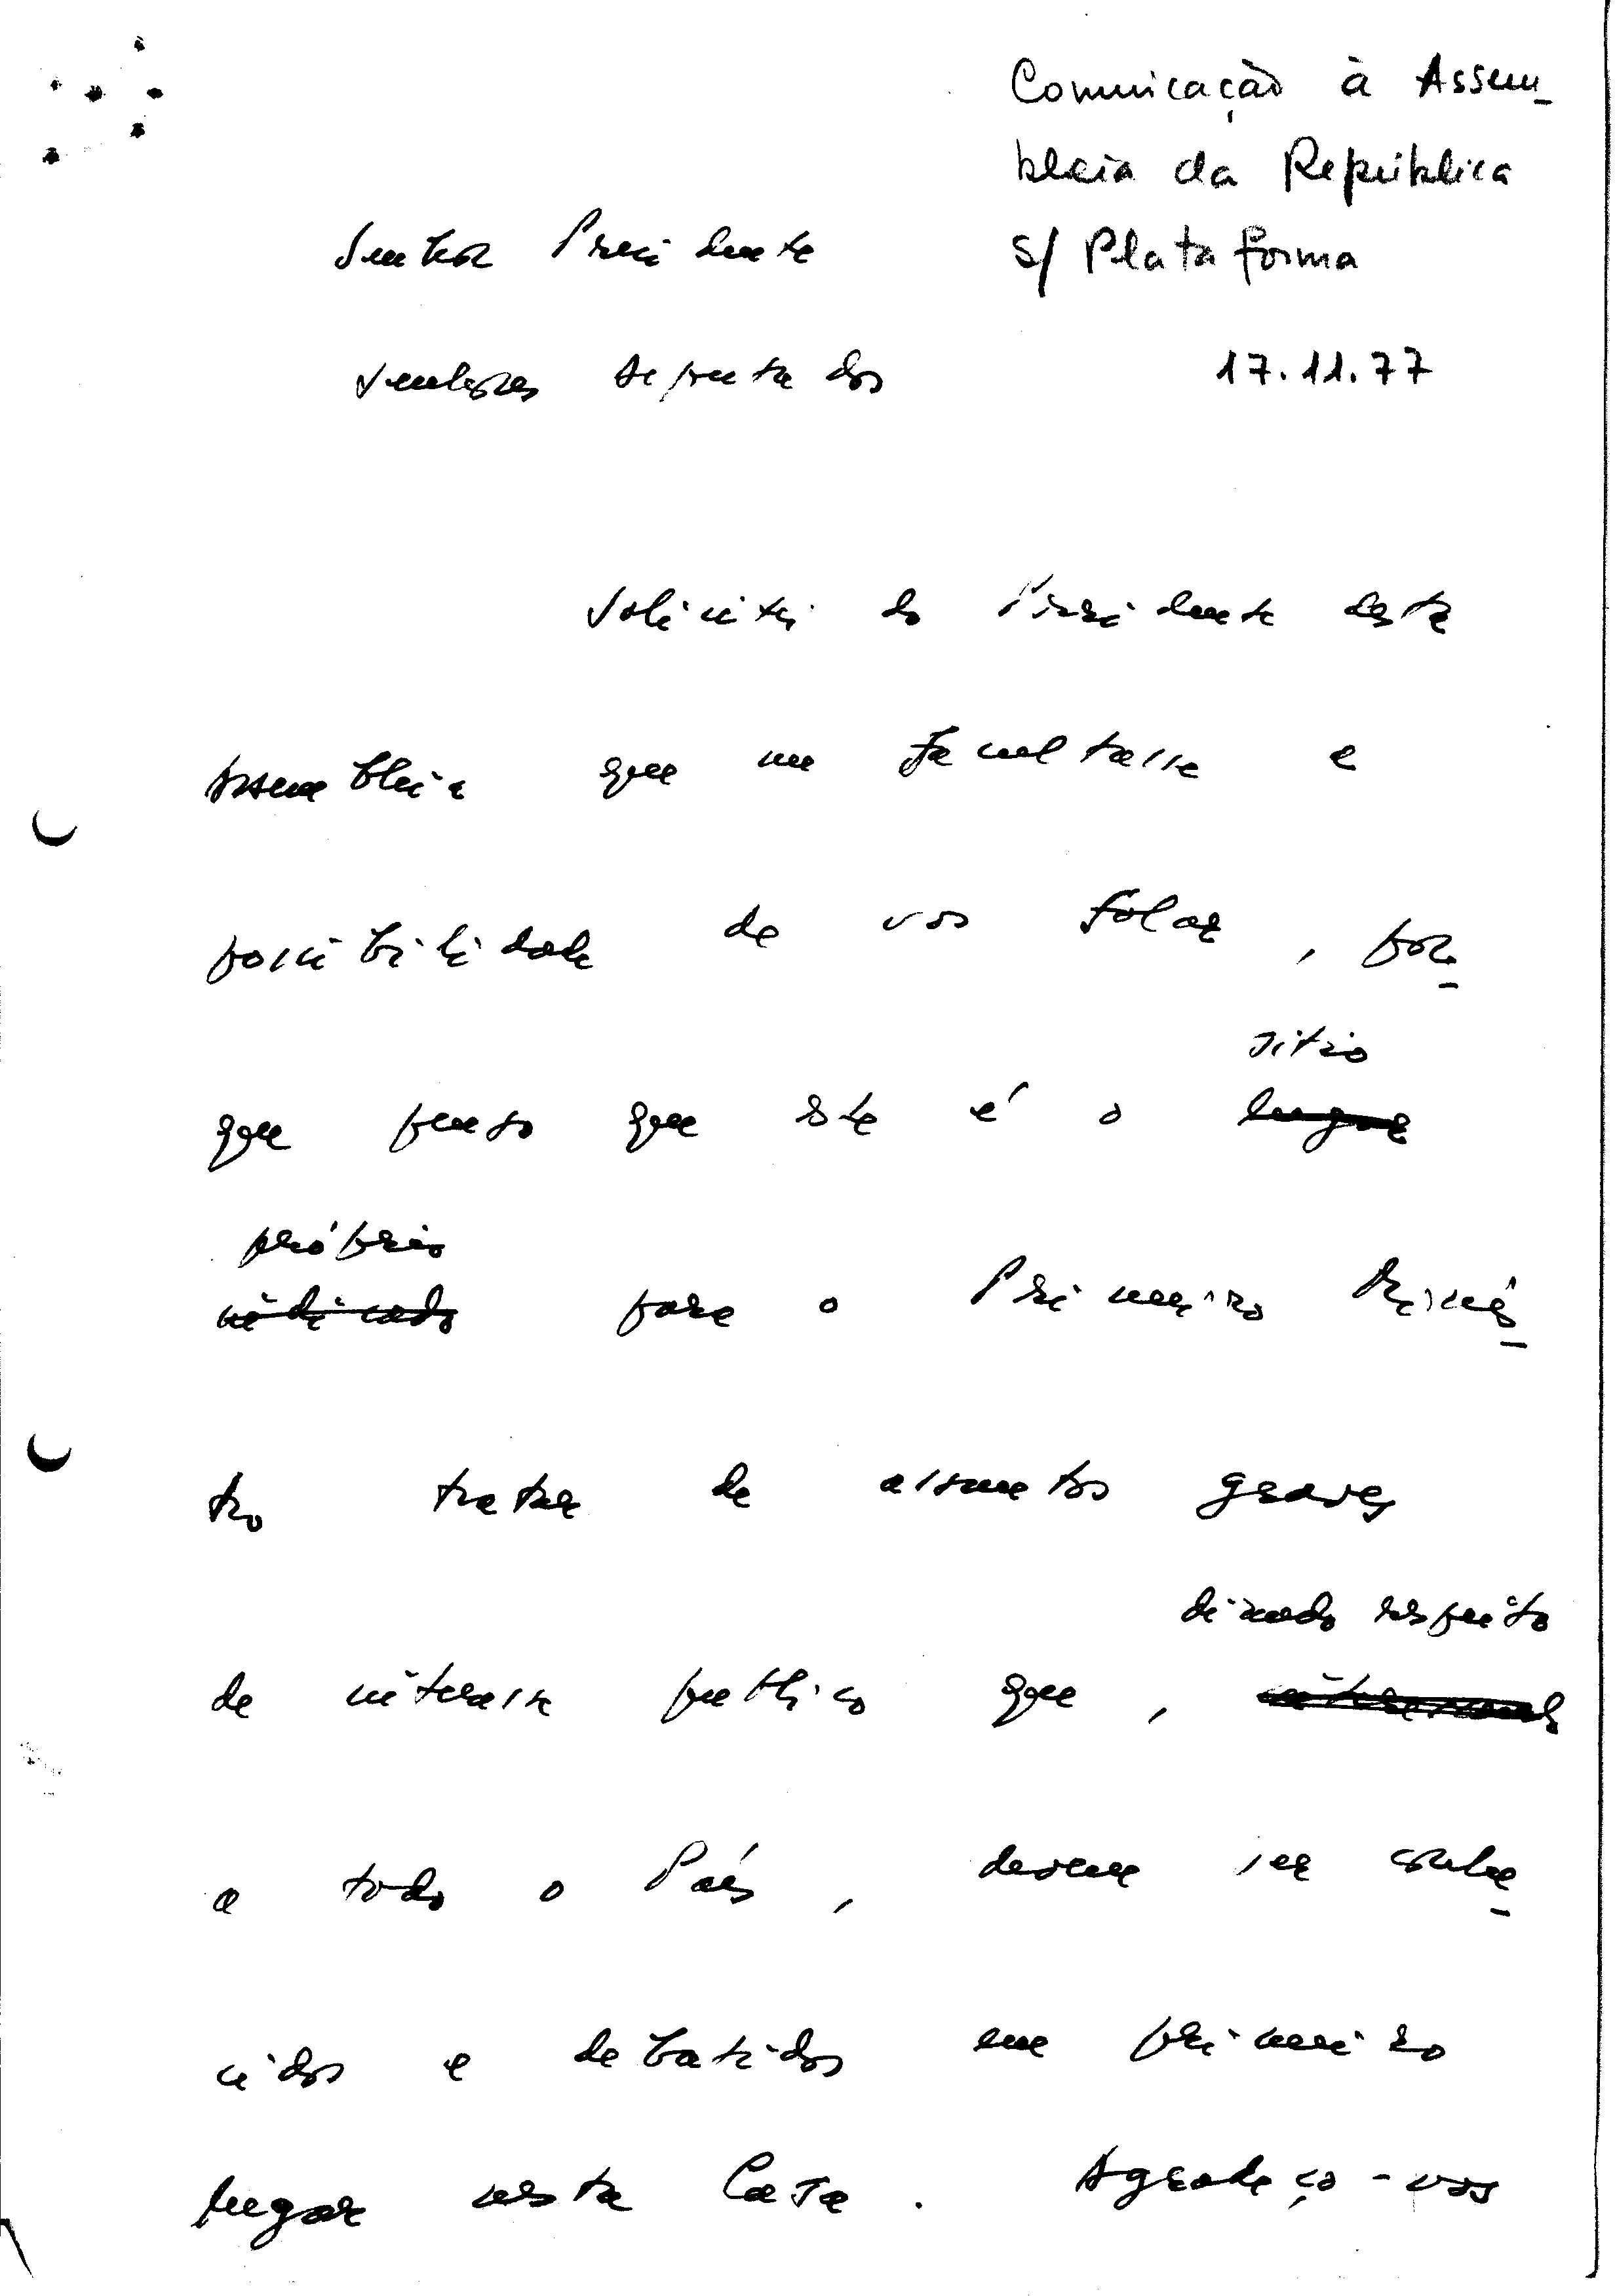 Comunicação à Assem-
bleia da República
s/ Plataforma
17.11.77
Senhor Presidente
Senhores Deputados
Solicitei do Presidente desta
Assembleia que me facultasse a
possibilidade de vos falar, por-
que penso que este é o lugar sítio
indicado próprio para o Primeiro Minis-
tro tratar de assuntos graves
de interesse publico que, interessando dizendo respeito
a todo o País, devem ser conhe-
cidos e debatidos em primeiro
lugar nesta Casa. Agradeço-vos